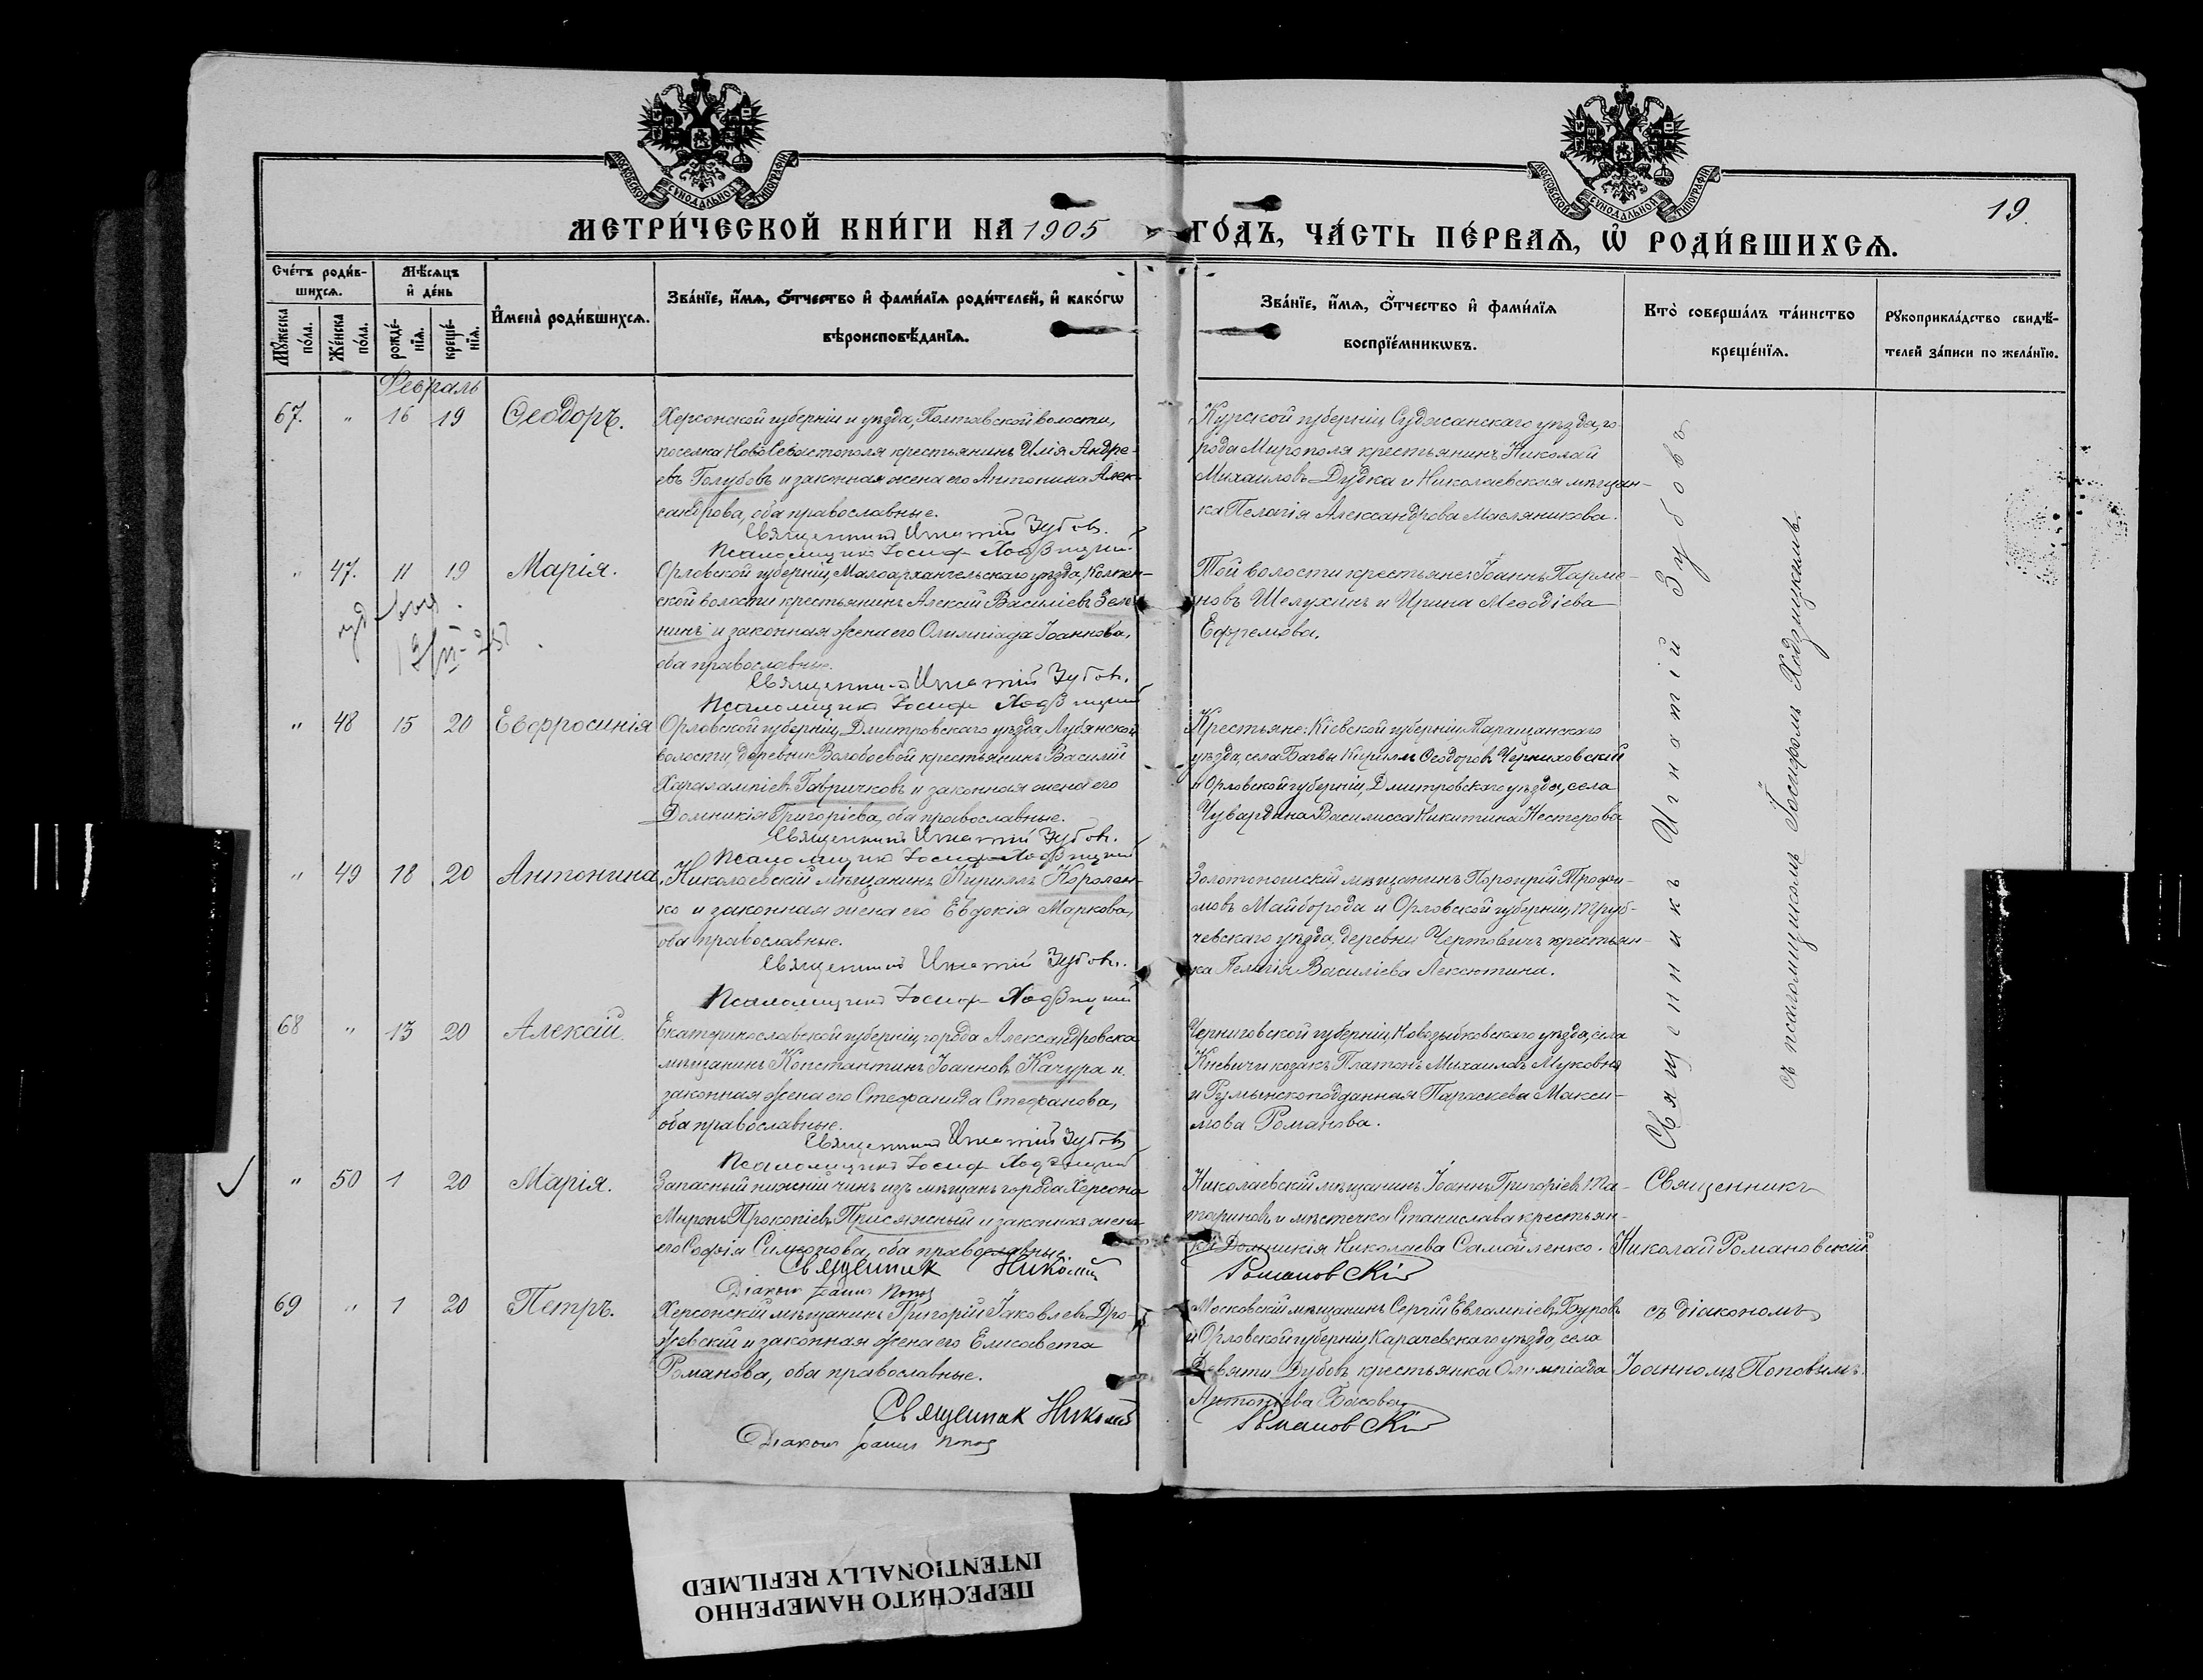 МОСКОВСКОЙ СѴНОДАЛЬНОЙ ТИПОГРАФІИ
МОСКОВСКОЙ СѴНОДАЛЬНОЙ ТИПОГРАФІИ
19.
МЕТРИ́ЧЕСКОЙ КНИ́ГИ НА 1905 ГО́ДЪ, ЧА́СТЬ ПЕ́РВАѦ, Ѡ҆ РОДИ́ВШИХСѦ.
Сче́тъ роди́в-
шихсѧ.
Мꙋ́жеска по́ла.
Же́нска по́ла.
Мѣ́сѧцъ
и҆ де́нь
рожде́-нїѧ.
креще́-нїѧ.
И҆мена̀ роди́вшихсѧ.
Зва́нїе, и҆́мѧ, ѻ҆́тчество и҆ фами́лїѧ роди́телей, и҆ како́гѡ
вѣроисповѣ́данїѧ.
Зва́нїе, и҆́мѧ, ѻ҆́тчество и҆ фами́лїѧ
воспрїе́мникѡвъ.
Кто̀ соверша́лъ та́инство
креще́нїѧ.
Рꙋкоприкла́дство свидѣ́-
телей за́писи по жела́нїю.
Февраль
67. " 16 19 Ѳеодоръ.
Херсонской губерніи и уѣзда, Полтавской волости,
поселка Ново Севастополя крестьянинъ Илія Андре-
евъ Голубовъ и законная жена его Антонина Алек-
сандрова, оба православные.
Священникъ Игнатій Зубовъ.
Псаломщикъ Іосифъ Ходзицкій
Курской губерніи, Суджанскаго уѣзда, го-
рода Мирополя крестьянинъ Николай
Михаиловъ Дудка и Николаевская мѣщан-
ка Пелагія Александрова Масляникова.
" 47. 11 19 Марія.
Орловской губерніи, Малоархангельскаго уѣзда, Колпен-
ской волости крестьянинъ Алексій Василіевъ Зеле-
нинъ и законная жена его Олимпіада Іоаннова,
оба православные.
Священникъ Игнатій Зубовъ.
Псаломщикъ Іосифъ Ходзицкій
Той волости крестьяне: Іоаннъ Парме-
новъ Шелухинъ и Ирина Меѳодіева
Ефремова.
" 48 15 20 Евфросинія
Орловской губерніи, Дмитровскаго уѣзда, Лубянской
волости, деревни Волобоевой крестьянинъ Василій
Харалампіевъ Гавричковъ и законная жена его
Домникія Григоріева, оба православные.
Священникъ Игнатій Зубовъ.
Псаломщикъ Іосифъ Ходзицкій
Крестьяне: Кіевской губерніи, Таращанскаго
уѣзда, села Багвы Кириллъ Ѳеодоровъ Черниховскій
и Орловской губерніи, Дмитровскаго уѣзда, села
Чувардина Василисса Никитина Нестерова
" 49 18 20 Антонина.
Николаевскій мѣщанинъ Кириллъ Королен-
ко и законная жена его Евдокія Маркова,
оба православные.
Священникъ Игнатій Зубовъ.
Псаломщикъ Іосифъ Ходзицкій
Золотоношскій мѣщанинъ Порфирій Трофи-
мовъ Майборода и Орловской губерніи, Труб-
чевскаго уѣзда, деревни Чертовичъ крестьян-
ка Пелагія Василіева Лексютина.
68 " 13 20 Алексій.
Екатеринославской губерніи, города Александровска
мѣщанинъ Константинъ Іоанновъ Качура и
законная жена его Стефанида Стефанова,
оба православные.
Священникъ Игнатій Зубовъ
Псаломщикъ Іосифъ Ходзицкій
Черниговской губерніи, Новозыбковскаго уѣзда, села
козакъ Платонъ Михаиловъ
и Румынскоподданная Параскева Макси-
мова Романова.
Священникъ Игнатій Зубовъ
съ псаломщикомъ Іосифомъ Ходзицкимъ.
" 50 1 20 Марія.
Запасный нижній чинъ изъ мѣщанъ города Херсона
Миронъ Прокопіевъ Присяжный и законная жена
его Софія Симеонова, оба православные.
Священник Николай Романовскій
Діаконъ Іоаннъ Попов
Николаевскій мѣщанинъ Іоаннъ Григоріевъ Та-
мариновъ и мѣстечка Станислава крестьян-
ка Домникія Николаева Самойленко.
Священникъ
Николай Романовскій
69 " 1 20 Петръ.
Херсонскій мѣщанинъ Григорій Іаковлевъ Дро-
жевскій и законная жена его Елисавета
Романова, оба православные.
Священник Николай Романовскій
Діаконъ Іоаннъ Попов
Московскій мѣщанинъ Сергій Евлампіевъ Буровъ
и Орловской губерніи, Карачевскаго уѣзда, села
Девяти Дубовъ крестьянка Олимпіада
Антоніева Басова
съ діакономъ
Іоанномъ Поповымъ.
ПЕРЕСНЯТО НАМЕРЕННО
INTENTIONALLY REFILMED